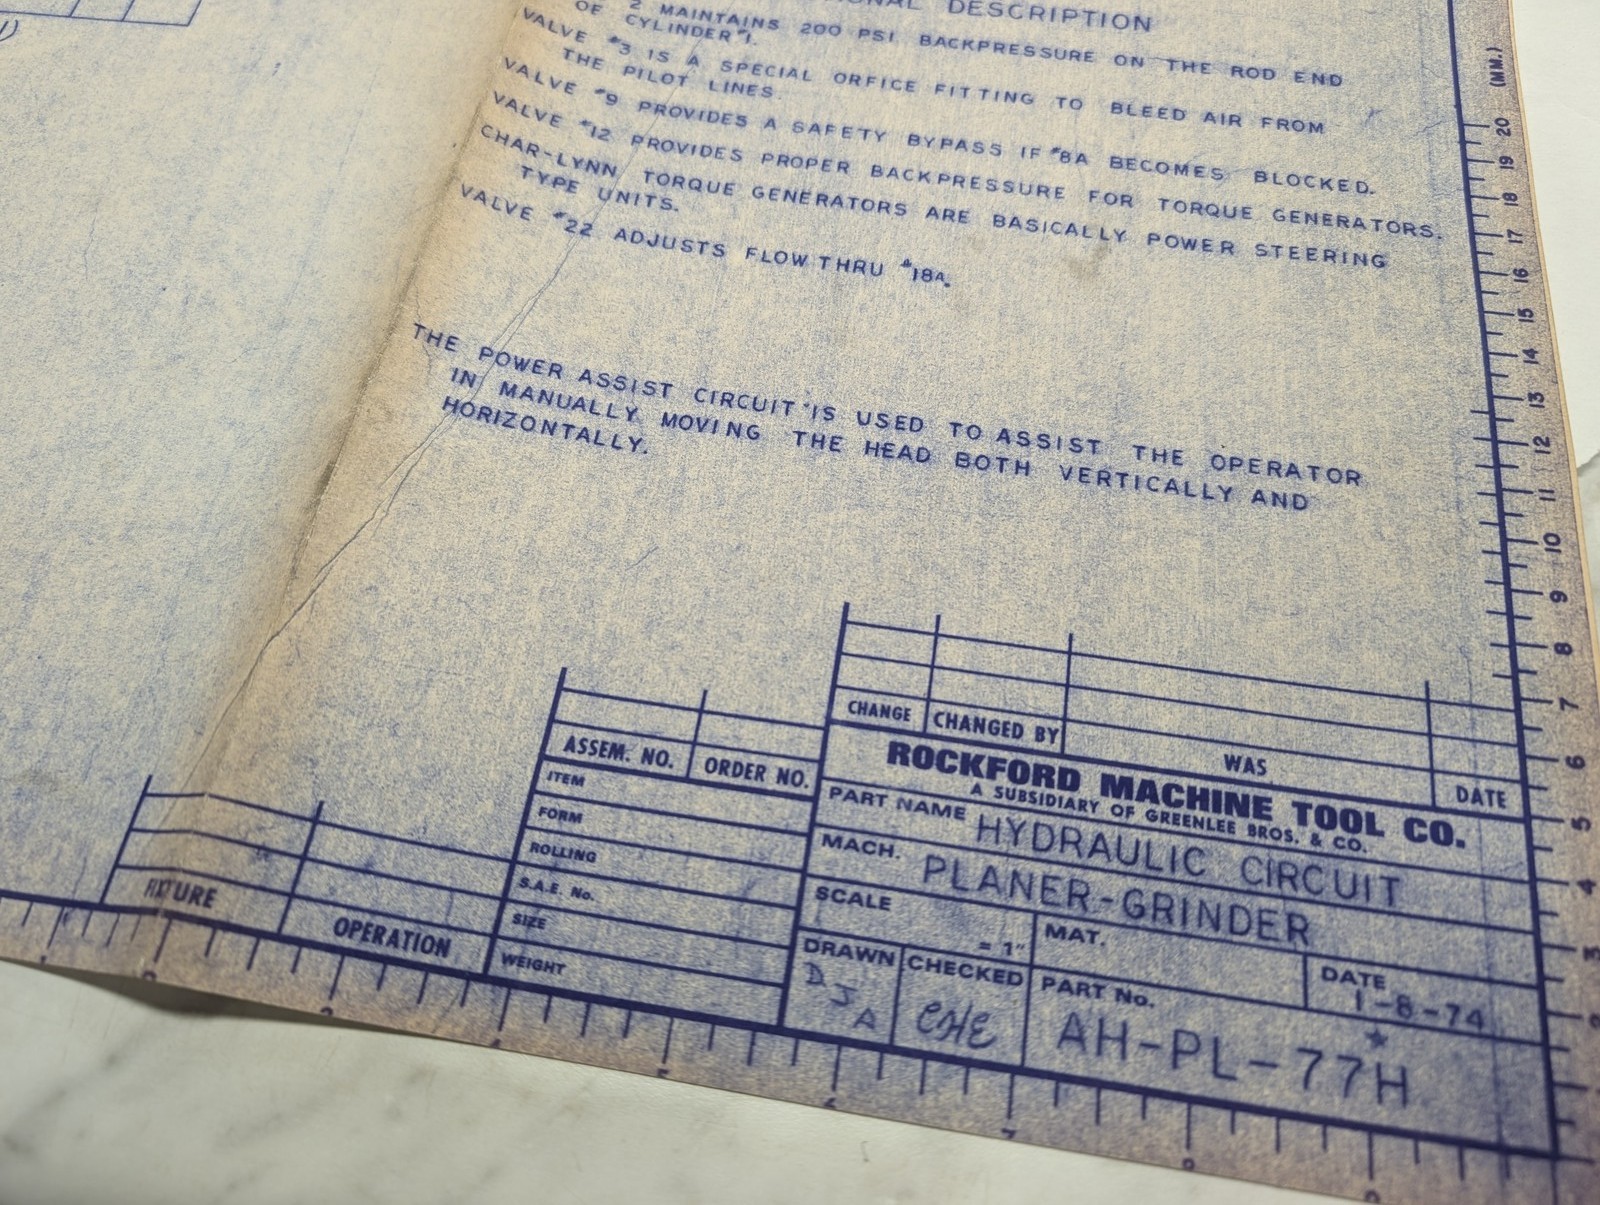 DESCRIPTION
2 MAINTAINS 200 PSI. BACKPRESSURE ON THE ROD END
OF CYLINDER #1.
VALVE #3 IS A SPECIAL ORFICE FITTING TO BLEED AIR FROM
THE PILOT LINES.
VALVE #9 PROVIDES A SAFETY BYPASS IF #8A BECOMES BLOCKED.
VALVE #12 PROVIDES PROPER BACKPRESSURE FOR TORQUE GENERATORS.
CHAR-LYNN TORQUE GENERATORS ARE BASICALLY POWER STEERING
TYPE UNITS.
VALVE #22 ADJUSTS FLOW THRU #18A.
THE POWER ASSIST CIRCUIT IS USED TO ASSIST THE OPERATOR
IN MANUALLY MOVING THE HEAD BOTH VERTICALLY AND
HORIZONTALLY.
CHANGE CHANGED BY WAS DATE
ROCKFORD MACHINE TOOL CO.
A SUBSIDIARY OF GREENLEE BROS. & CO.
PART NAME HYDRAULIC CIRCUIT
MACH. PLANER-GRINDER
SCALE = 1"
MAT.
DATE 1-8-74
DRAWN DJA
CHECKED CHE
PART No. AH-PL-77H
ASSEM. NO. ORDER NO.
ITEM
FORM
ROLLING
S.A.E. No.
SIZE
WEIGHT
FIXTURE
OPERATION
(MM.)
20
19
18
17
16
15
14
13
12
11
10
9
8
7
6
5
4
3